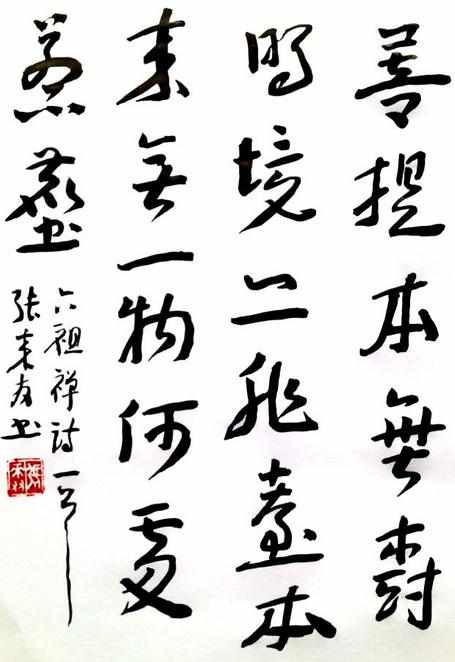 菩提本無樹
明境亦非臺本
来無一物何處
惹塵
六祖禅詩一首
张来友书